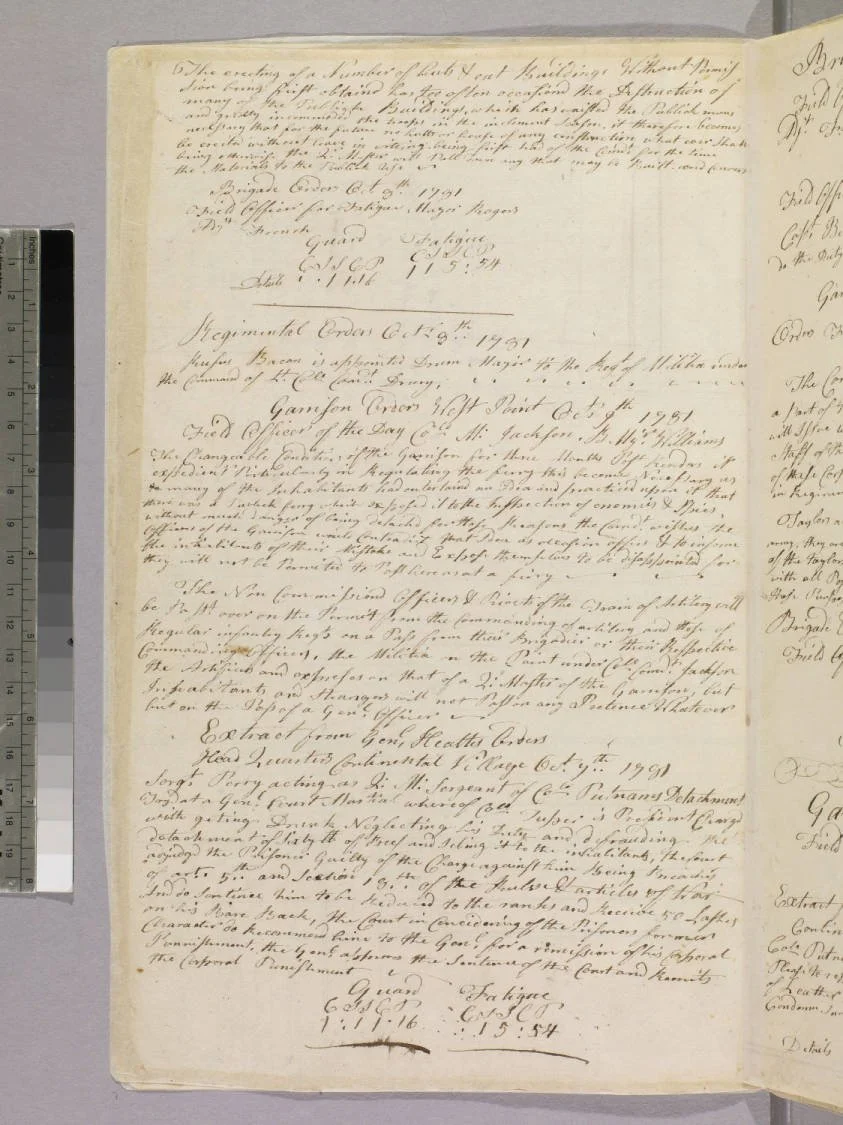 The erecting of a Number of huts & out Buildings Without Permis
sion being first obtaind has too often occasiond the Distruction of
many of the Publick Buildings, which has wasted the Publick mony
and gritly incommoded the troops in the inclement Season, it therefore becomes
necessary that for the future no hutt or house of any construction what ever Shall
be erected without leave in writing being first had of the Comdt for the time
being otherwise the Qr Master will Pull down any that may be built and convert
the Materials to the Publick Use
Brigade Orders Oct 9th 1781
Field Officer for Fatigue Major Rogers
Adjt French
Guard Fatigue
C S S C P C S S C P
Details : . 1 1 . 16 1 1 5 : 54
Regimental Orders Octr 9th 1781
Rufus Bacon is appointed Drum Major to the Regt of Militia under
the Command of Lt Colo Comdt Drury,
Garrison Orders West Point Octr 9th 1781
Field Officer of the Day Colo M. Jackson. B. Mjr Williams
The Changeable Situation of the Garrison for three Months Past Rendars it
expedient Particularly in Regulating the ferry this became Necessary as
many of the Inhabitants had entertaind an Idea and practiced upon it that
there was a Publick ferry which exposed it to the Inspection of enemies & Spies,
without much danger of being detected for these Reasons the Comdt wishes the
Officers of the Garrison would Contradict that Idea as occasion offers & to inform
the inhabitants of their Mistake and Expose themselves to be disappointed for
they will not be Permitted to Pass here as at a ferry
The Non Commissiond Officers & Privets of the Train of Artilery will
be Past over on the Permit from the Commanding of artilery and those of
Regular infantry Regts on a Pass from their Brigadier or their Respective
Commanding Officers, the Militia on the Point under Colo Comdt Jackson
the Artificers and expresses on that of a Qr Master of the Garrison, but
Inhabitants and Strangers will not Pass on any Pretence Whatever
but on the Pass of a Genl Officer
Extract from Genl Heaths Orders
Head Quarters Continental Village Oct. 7th 1781
Sergt Perry acting as Qr Mr Sergeant of Colo Putnams Detachment
Tryd at a Genl Court Martial whereof Colo Tupper is President Chargd
with geting Drunk Neglecting his Duty and defrauding the
detachment of Sixty lb of Beef and Seling it to the inhabitants, the Court
ajudge the Prisoner Guilty of the Charge against him Being breaches
of art. 5th and Section 18th of the Rules & articles of War
And do Sentince him to be Reducd to the ranks and Receive 50 Lashes
on his Bare Back, the Court in Concidering of the Prisoners former
Character do Recommend him to the Genl for a remission of his Corporal
Punnishment, the Genl approves the Sentence of the Court and Remits
the Corporal Punishment
Guard Fatigue
C S S C P C S S C P
1 : 1 1 . 16 . : 1 5 : 54